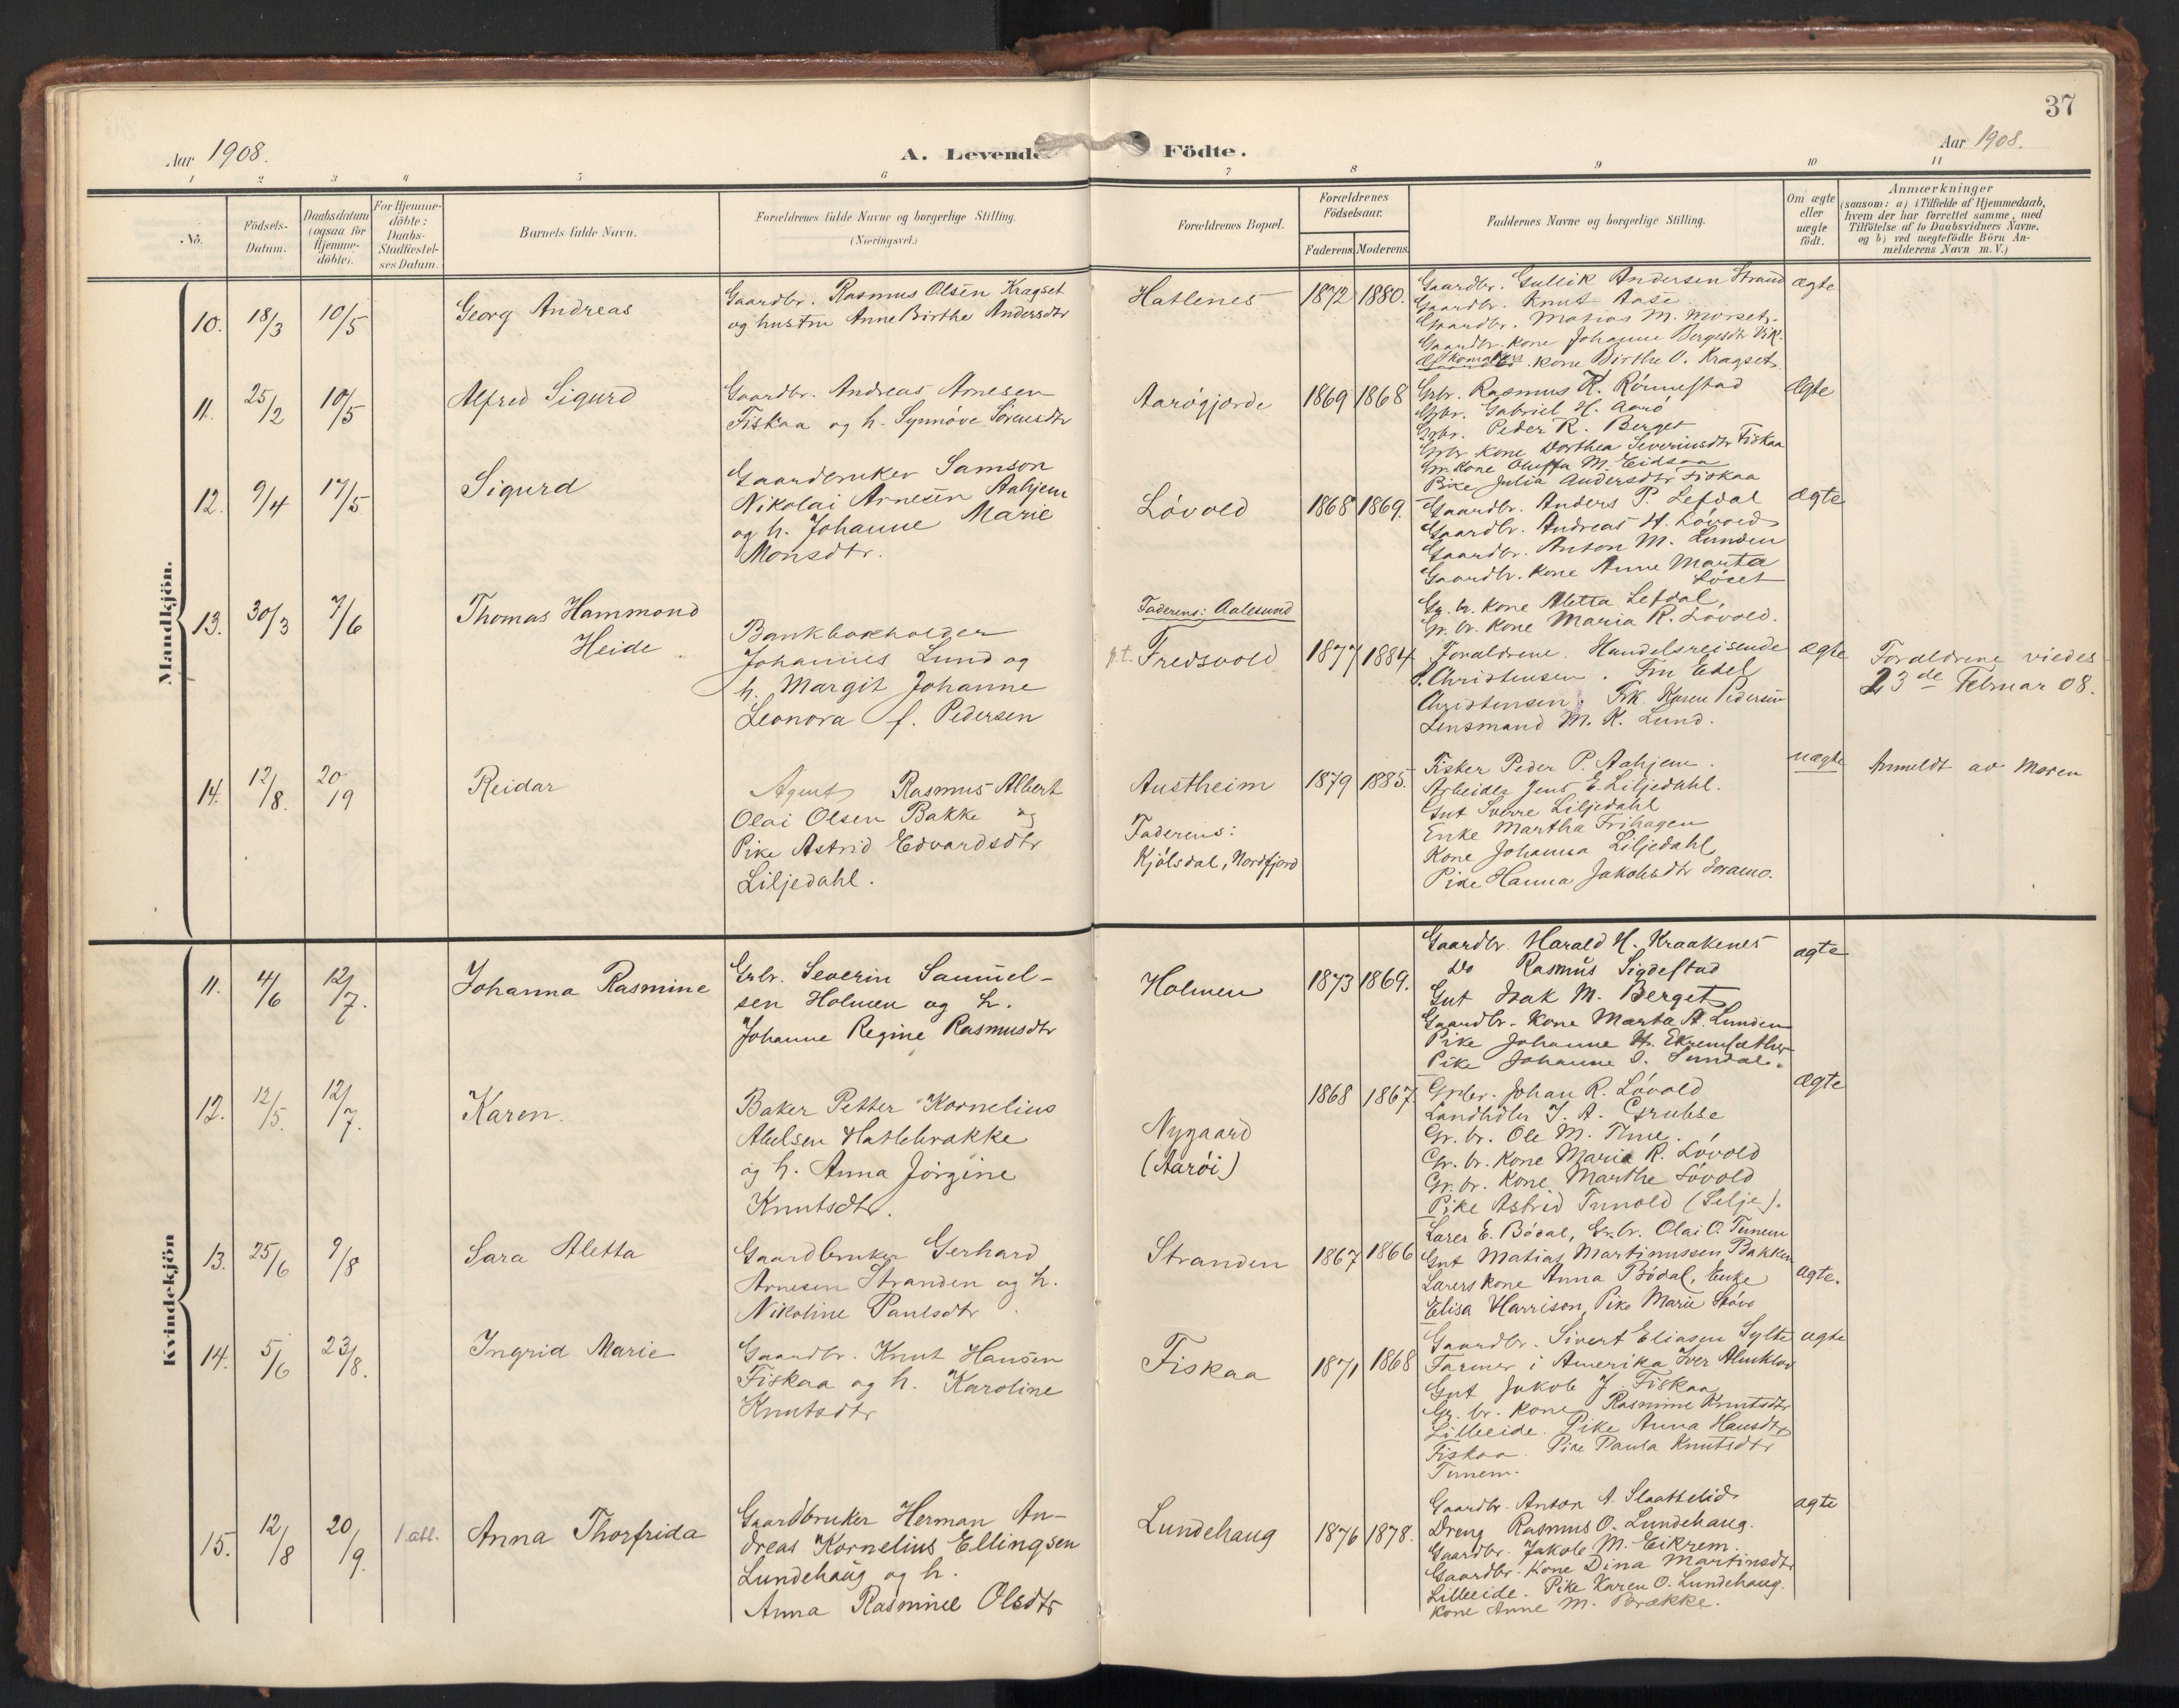 37
Aar 1908.
A. Levende Födte.
Aar 1908.
1 2 3 4 5 6 7 8 9 10 11
No.
Födsels-
Datum.
Daabsdatum
(ogsaa for
Hjemme-
döbte).
For Hjemme-
döbte:
Daabs-
Stadfæstel-
ses Datum.
Barnets fulde Navn.
Forældrenes fulde Navne og borgerlige Stilling.
(Næringsvei.)
Forældrenes Bopæl.
Forældrenes
Födselsaar.
Faderens Moderens.
Faddernes Navne og borgerlige Stilling.
Om ægte
eller
uægte
födt.
Anmærkninger
(saasom: a) i Tilfælde af Hjemmedaab,
hvem der har forrettet samme, med
Tilföielse af to Daabsvidners Navne.
og b) ved uægtefödte Börn An-
melderens Navn m.V.)
Mandkjön.
10. 18/3 10/5
Georg Andreas
Gaardbr. Rasmus Olsen Kragset
og hustru Anne Birthe Andersdtr
Hatlenes
1872 1880.
Gaardbr. Gullik Andersen Strand
Gaardbr. Knut Aase
Gaardbr. Matias M. Morset
Gaardbr. Kone Johanne Bergesdtr Vik.
Kone Birthe O. Kragset
ægte
11. 25/2 10/5
Alfred Sigurd
Gaardbr. Andreas Arnesen
Fiskaa og h. Synnöve Sörensdtr
Aarögjerde
1869 1868
Grbr. Rasmus K. Rönnestad
Grbr. Gabriel H. Aarö
Grbr. Peder R. Berget
Grbr Kone Dorthea Severinsdtr Fiskaa
Gr. Kone Oluffa M. Eidsaa
Pike Julia Andersdtr Fiskaa
Ægte
12. 9/4 17/5
Sigurd
Gaardbruker Samson
Nikolai Arnesen Aahjem
og h. Johanne Marie
Monsdtr.
Lövold
1868 1869.
Gaardbr. Anders P. Lefdal
Gaardbr. Andreas H. Lövold
Gaardbr. Anton M. Lunden
Gaardbr. Kone Anne Marta
Löset
Gr. br. Kone Aletta Lefdal,
Gr. br. Kone Maria R. Lövold.
ægte
13. 30/3 7/6
Thomas Hammond
Heide
Bankbokholder
Johannes Lund og
h. Margit Johanne
Leonora f. Pedersen
Faderens: Aalesund
p.t. Fredsvold
1877 1884
Forældrene. Handelsreisende
Christensen. Fru Edel
Christensen. Frk. Karen Pedersen
Lensmand M. K. Lund.
ægte
Forældrene viedes
23de Februar 08.
14. 12/8. 20/19
Reidar
Agent Rasmus Albert
Olai Olsen Bakke og
Pike Astrid Edvardsdtr
Liljedahl.
Austheim
Faderens:
Kjölsdal, Nordfjord
1879 1885.
Fisker Peder P. Aahjem.
Arbeider Jens E. Liljedahl.
Gut Sverre Liljedahl
Enke Martha Frihagen
Kone Johanna Liljedahl
Pike Hanna Jakobsdtr
uægte
Anmeldt av Moren
Kvindekjön
11. 4/6 12/7.
Johanna Rasmine
Grbr. Severin Samuel-
sen Holmen og h.
Johanne Regine Rasmusdtr
Holmen
1873 1869.
Gaardbr. Harald H. Kraakenes
Do Rasmus Sigdestad
Gut Isak M. Berget
Gaardbr. Kone Marta A. Lunden
Pike Johanne H. Ekremsæther
Pike Johanne O. Sundal.
ægte
12. 12/5. 12/7.
Karen.
Baker Petter Kornelius
Abelsen Hatlebrække
og h. Anna Jörgine
Knutsdtr.
Nygaard
(Aaröi)
1868 1867
Grbr. Johan R. Lövold
Landhdlr J. A. Grubse
Gr. br. Ole M. Thue.
Gr. br. Kone Maria R. Lövold
Gr. br. Kone Marthe Lövold
Pike Astrid Tunold (Selje).
Ægte
13. 25/6 9/8
Sara Aletta
Gaardbruker Gerhard
Arnesen Stranden og h.
Nikoline Paulsdtr.
Stranden
1867 1866
Lærer E. Bödal, Gr. br. Olai O. Tunem
Gut Matias Martinussen Bakken
Lærers kone Anna Bödal, Enke
Elisa Harrison, Pike Marie
ægte.
14. 5/6 23/8.
Ingrid Marie
Gaardbr. Knut Hansen
Fiskaa og h. Karoline
Knutsdtr
Fiskaa
1871 1868
Gaardbr. Sivert Eliasen Sylte
Farmer i Amerika Iver Almklov
Gut Jakob J. Fiskaa
Gr. br. Kone Rasmine Knutsdtr
Lilleeide. Pike Anna Hansdtr
Fiskaa. Pike Paula Knutsdtr
Tunem.
ægte
15. 12/8 20/9.
Anna Thorfrida
Gaardbruker Herman An-
dreas Kornelius Ellingsen
Lundehaug og h.
Anna Rasmine Olsdtr
Lundehaug
1876 1878.
Gaardbr. Anton A. Slaattelid
Dreng Rasmus O. Lundehaug.
Gaardbr. Jakob M. Eikrem.
Gaardbr. Kone Dina Martinsdtr
Lilleeide. Pike Karen O. Lundehaug.
Kone Anne M. Brække.
ægte